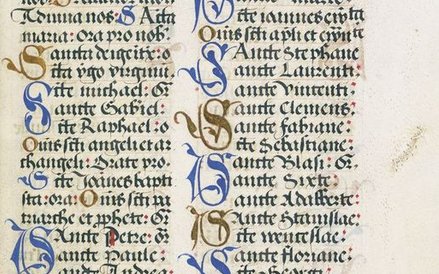 Adiuua nos: Sācta
maria: ora pro nob'
Sancta dei
Scta v'go virginū
Scte michael: Or
Sancte Gabriel:
Scte Raphael: o
Om̄s scti angeli et ar
changeli: Orate pro.
Scte Joānes bapti
sta: ora: Om̄s scti pa
triarche et pphete: Or
Sancte Petre: Or
Sancte Paule:
Sancte Andrea
Scte ioannes
Om̄s scti apli et
Sancte Stephane
Sancte Laurenti:
Sancte Vincenti:
Sancte Clemens:
Sancte Fabiane:
Scte Sebastiane:
Sancte Blasi: Or
Sancte Sixte:
Sancte Adilberte:
Sancte Stanislae:
Scte wenceslae:
Sancte Floriane:
Sancte George: